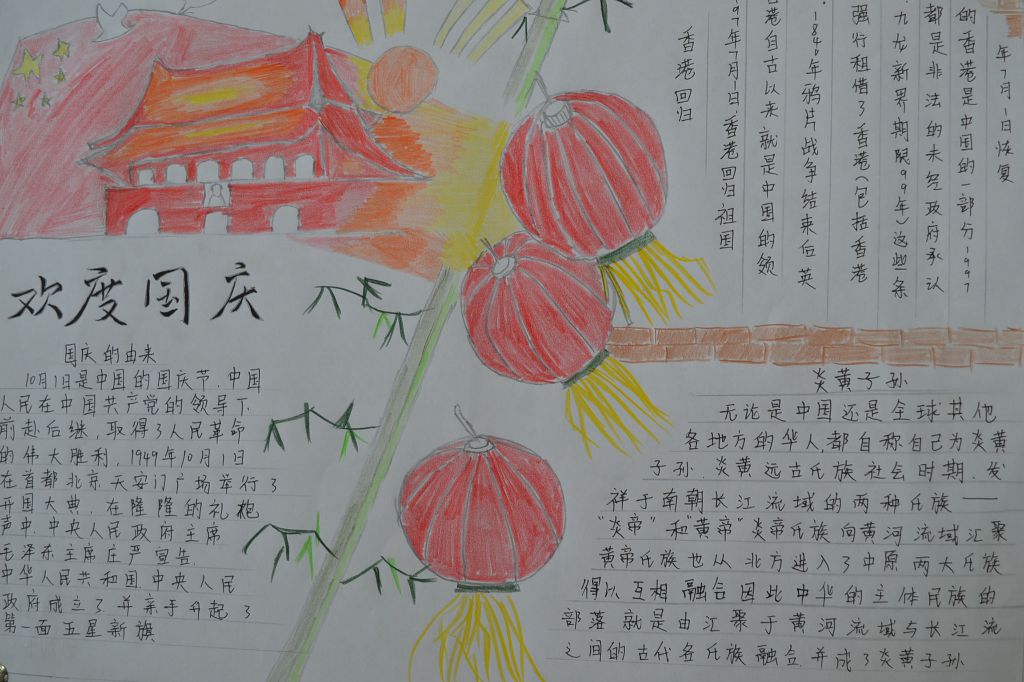 欢度国庆
国庆的由来
10月1日是中国的国庆节.中国
人民在中国共产党的领导下
前赴后继,取得了人民革命
的伟大胜利,1949年10月1日
在首都北京天安门广场举行了
开国大典,在隆隆的礼炮
声中,中央人民政府主席
毛泽东主席庄严宣告
中华人民共和国中央人民
政府成立了并亲手升起了
第一面五星新旗
香港回归
97年7月1日香港回归祖国
港自古以来就是中国的领
1840年鸦片战争结束后英
强行租借了香港(包括香港
九龙新界期限99年)这些条
都是非法的未经政府承认
的香港是中国的一部分1997
年7月1日恢复
炎黄子孙
无论是中国还是全球其他
各地方的华人,都自称自己为炎黄
子孙.炎黄远古氏族社会时期.发
祥于南朝长江流域的两种氏族——
"炎帝"和"黄帝"炎帝氏族向黄河流域汇聚
黄帝氏族也从北方进入了中原两大氏族
得以互相融合因此中华的主体民族的
部落就是由汇聚于黄河流域与长江流
之间的古代各氏族融合.并成了炎黄子孙